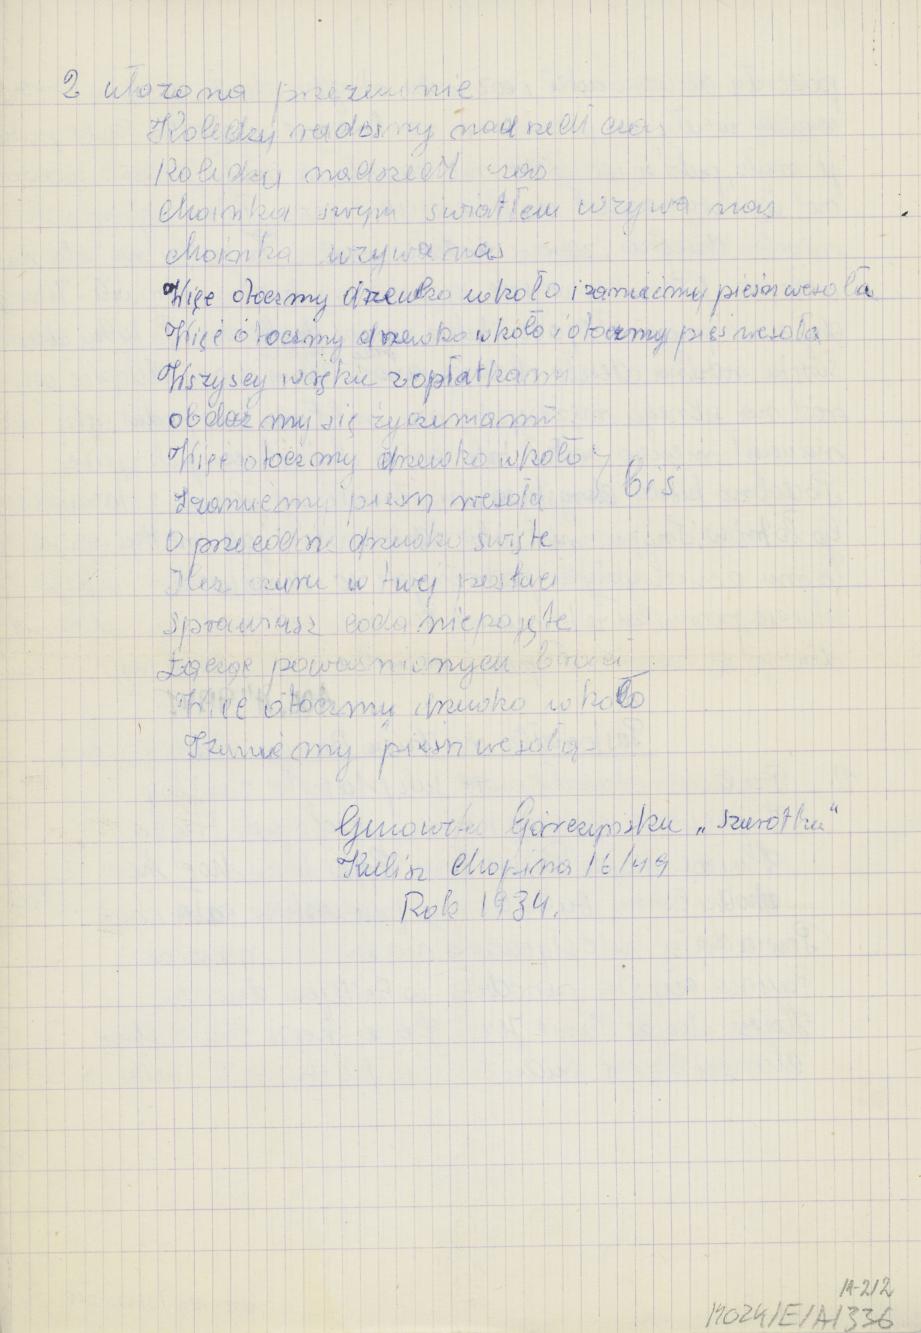 2 ułożona przezemnie
Kolędky radosny nadszedł czas
Kolędky nadszedł czas
choinka swym światłem wzywa nas
choinka wzywa nas
Więc otoczmy drzewko wkoło i zanućmy pieśń wesoła
Więc otoczmy drzewko wkoło i otoczmy pieś wesoła
Wszyscy wąsku z opłatkami
obdażmy się życzeniami
Więc otoczmy drzewko wkoło
Izanućmy pieśń wesoła bis
O przecódne drzewko święte
Ileż czaru w twej postaci
Sprawiasz coda niepojęte
Łącząc powaśnionych braci
Więc otoczmy drzewko wkoło
Izanućmy pieśń wesołą
Genowefa "Szarotka"
Kalisz Chopina 16/49
Rok 1934.
A-212
MOZK/E/A/336